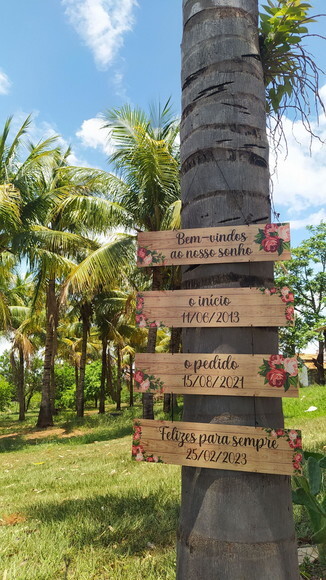 Bem-vindos
ao nosso sonho
o início
11/06/2013
o pedido
15/08/2021
Felizes para sempre
25/02/2023